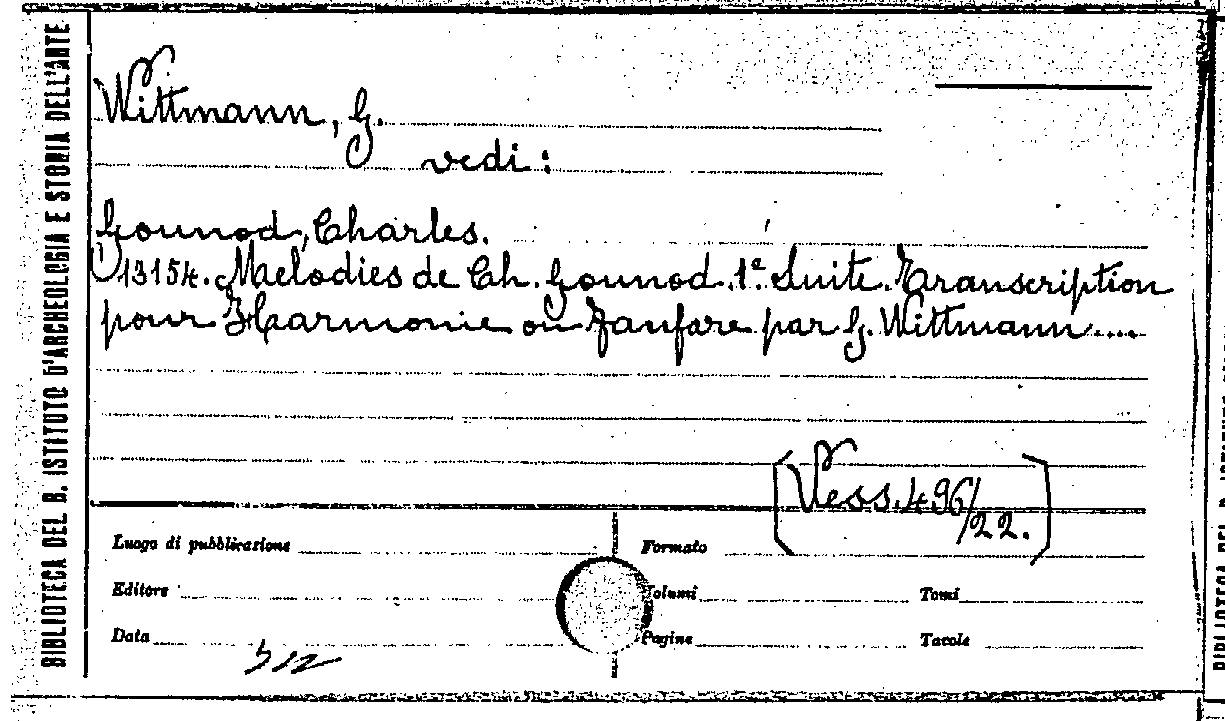 BIBLIOTECA DEL B. ISTITUTO D'ARCHEOLOGIA E STORIA DELL'ARTE
Wittmann, G.
vedi:
Gounod, Charles.
13154. Melodies de Ch. Gounod. 1e Suite. Transcription
pour Harmonie ou Fanfare par G. Wittmann....
[Vess. 496/22.]
Luogo di pubblicazione Formato
Editore Volumi Tomi
Data Pagine Tavole